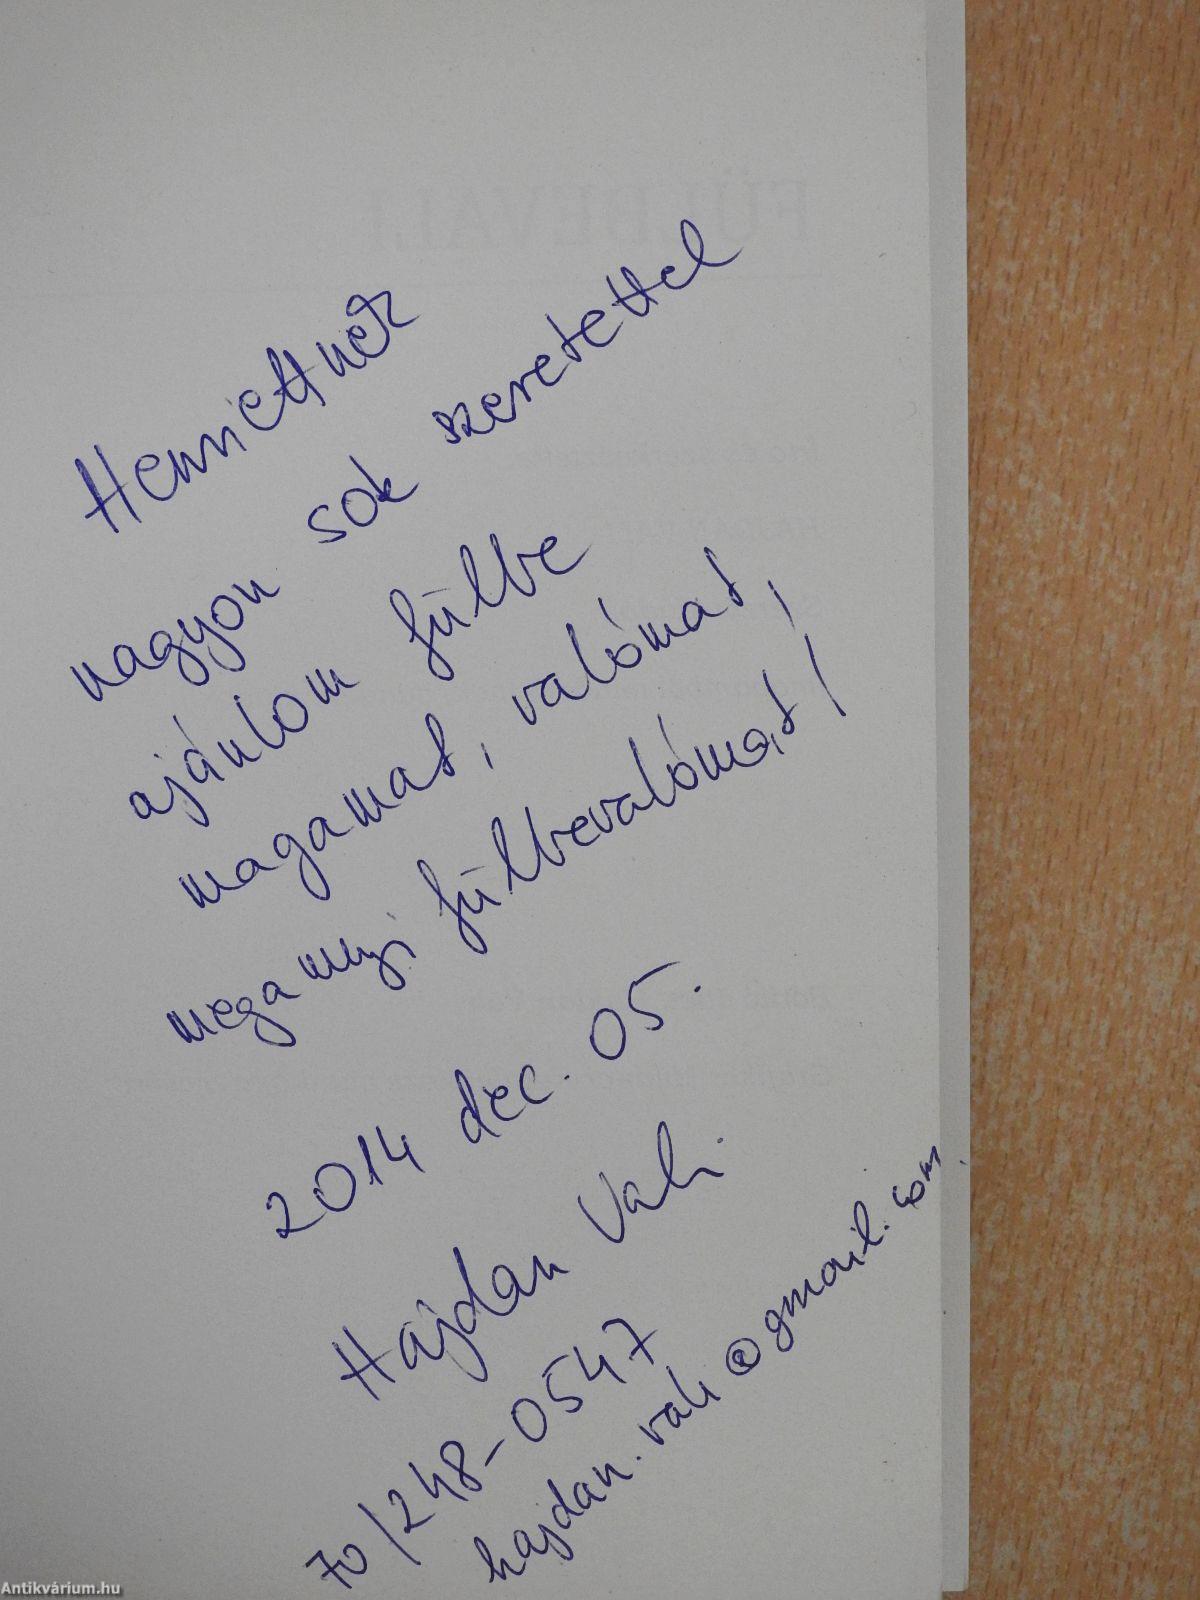 Henriettnek
nagyon sok szeretettel
ajánlom fülbe
magamat, valómat,
megannyi fülbevalómat!
2014 dec. 05.
Hajdan Vali
70/248-0547
hajdan.vali@gmail.com
FÜLBEVALI
Antikvárium.hu